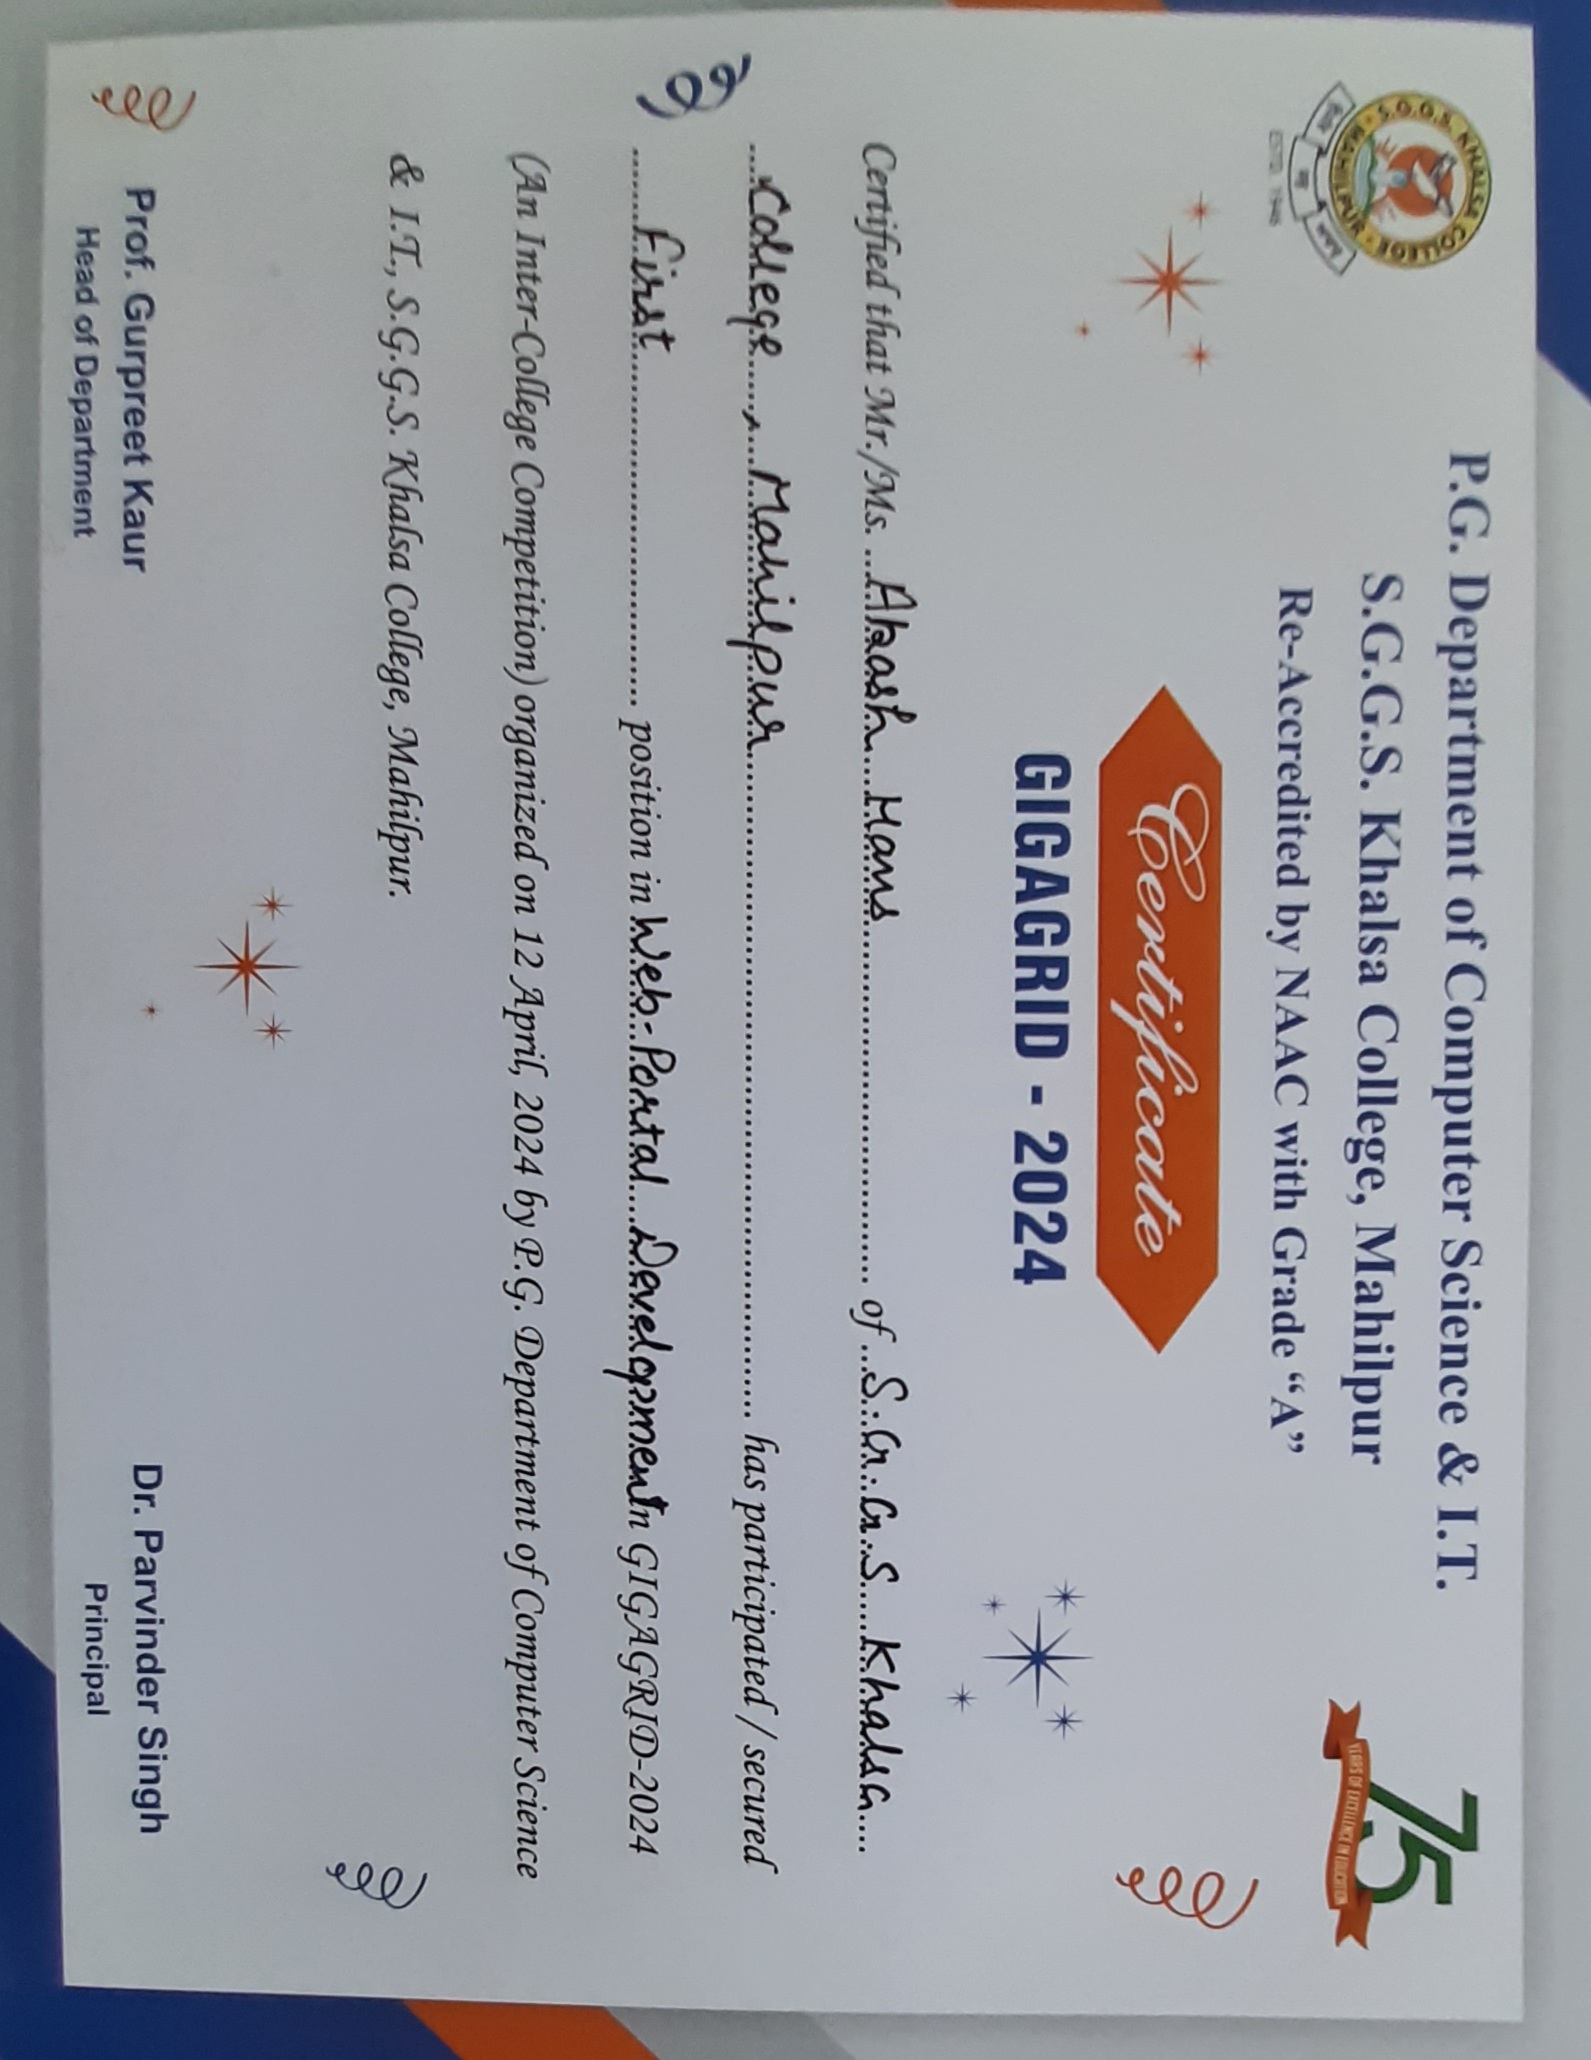 P.G. Department of Computer Science & I.T.
S.G.G.S. Khalsa College, Mahilpur
Re-Accredited by NAAC with Grade “A”
S.G.G.S. KHALSA COLLEGE
MAHILPUR
ESTD. 1946
75
YEARS OF EXCELLENCE IN EDUCATION
Certificate
GIGAGRID - 2024
Certified that Mr./Ms. Akash Hans of S.G.G.S Khalsa
College, Mahilpur has participated / secured
First position in Web-Portal Development in GIGAGRID-2024
(An Inter-College Competition) organized on 12 April, 2024 by P.G. Department of Computer Science
& I.T., S.G.G.S. Khalsa College, Mahilpur.
Prof. Gurpreet Kaur
Head of Department
Dr. Parvinder Singh
Principal